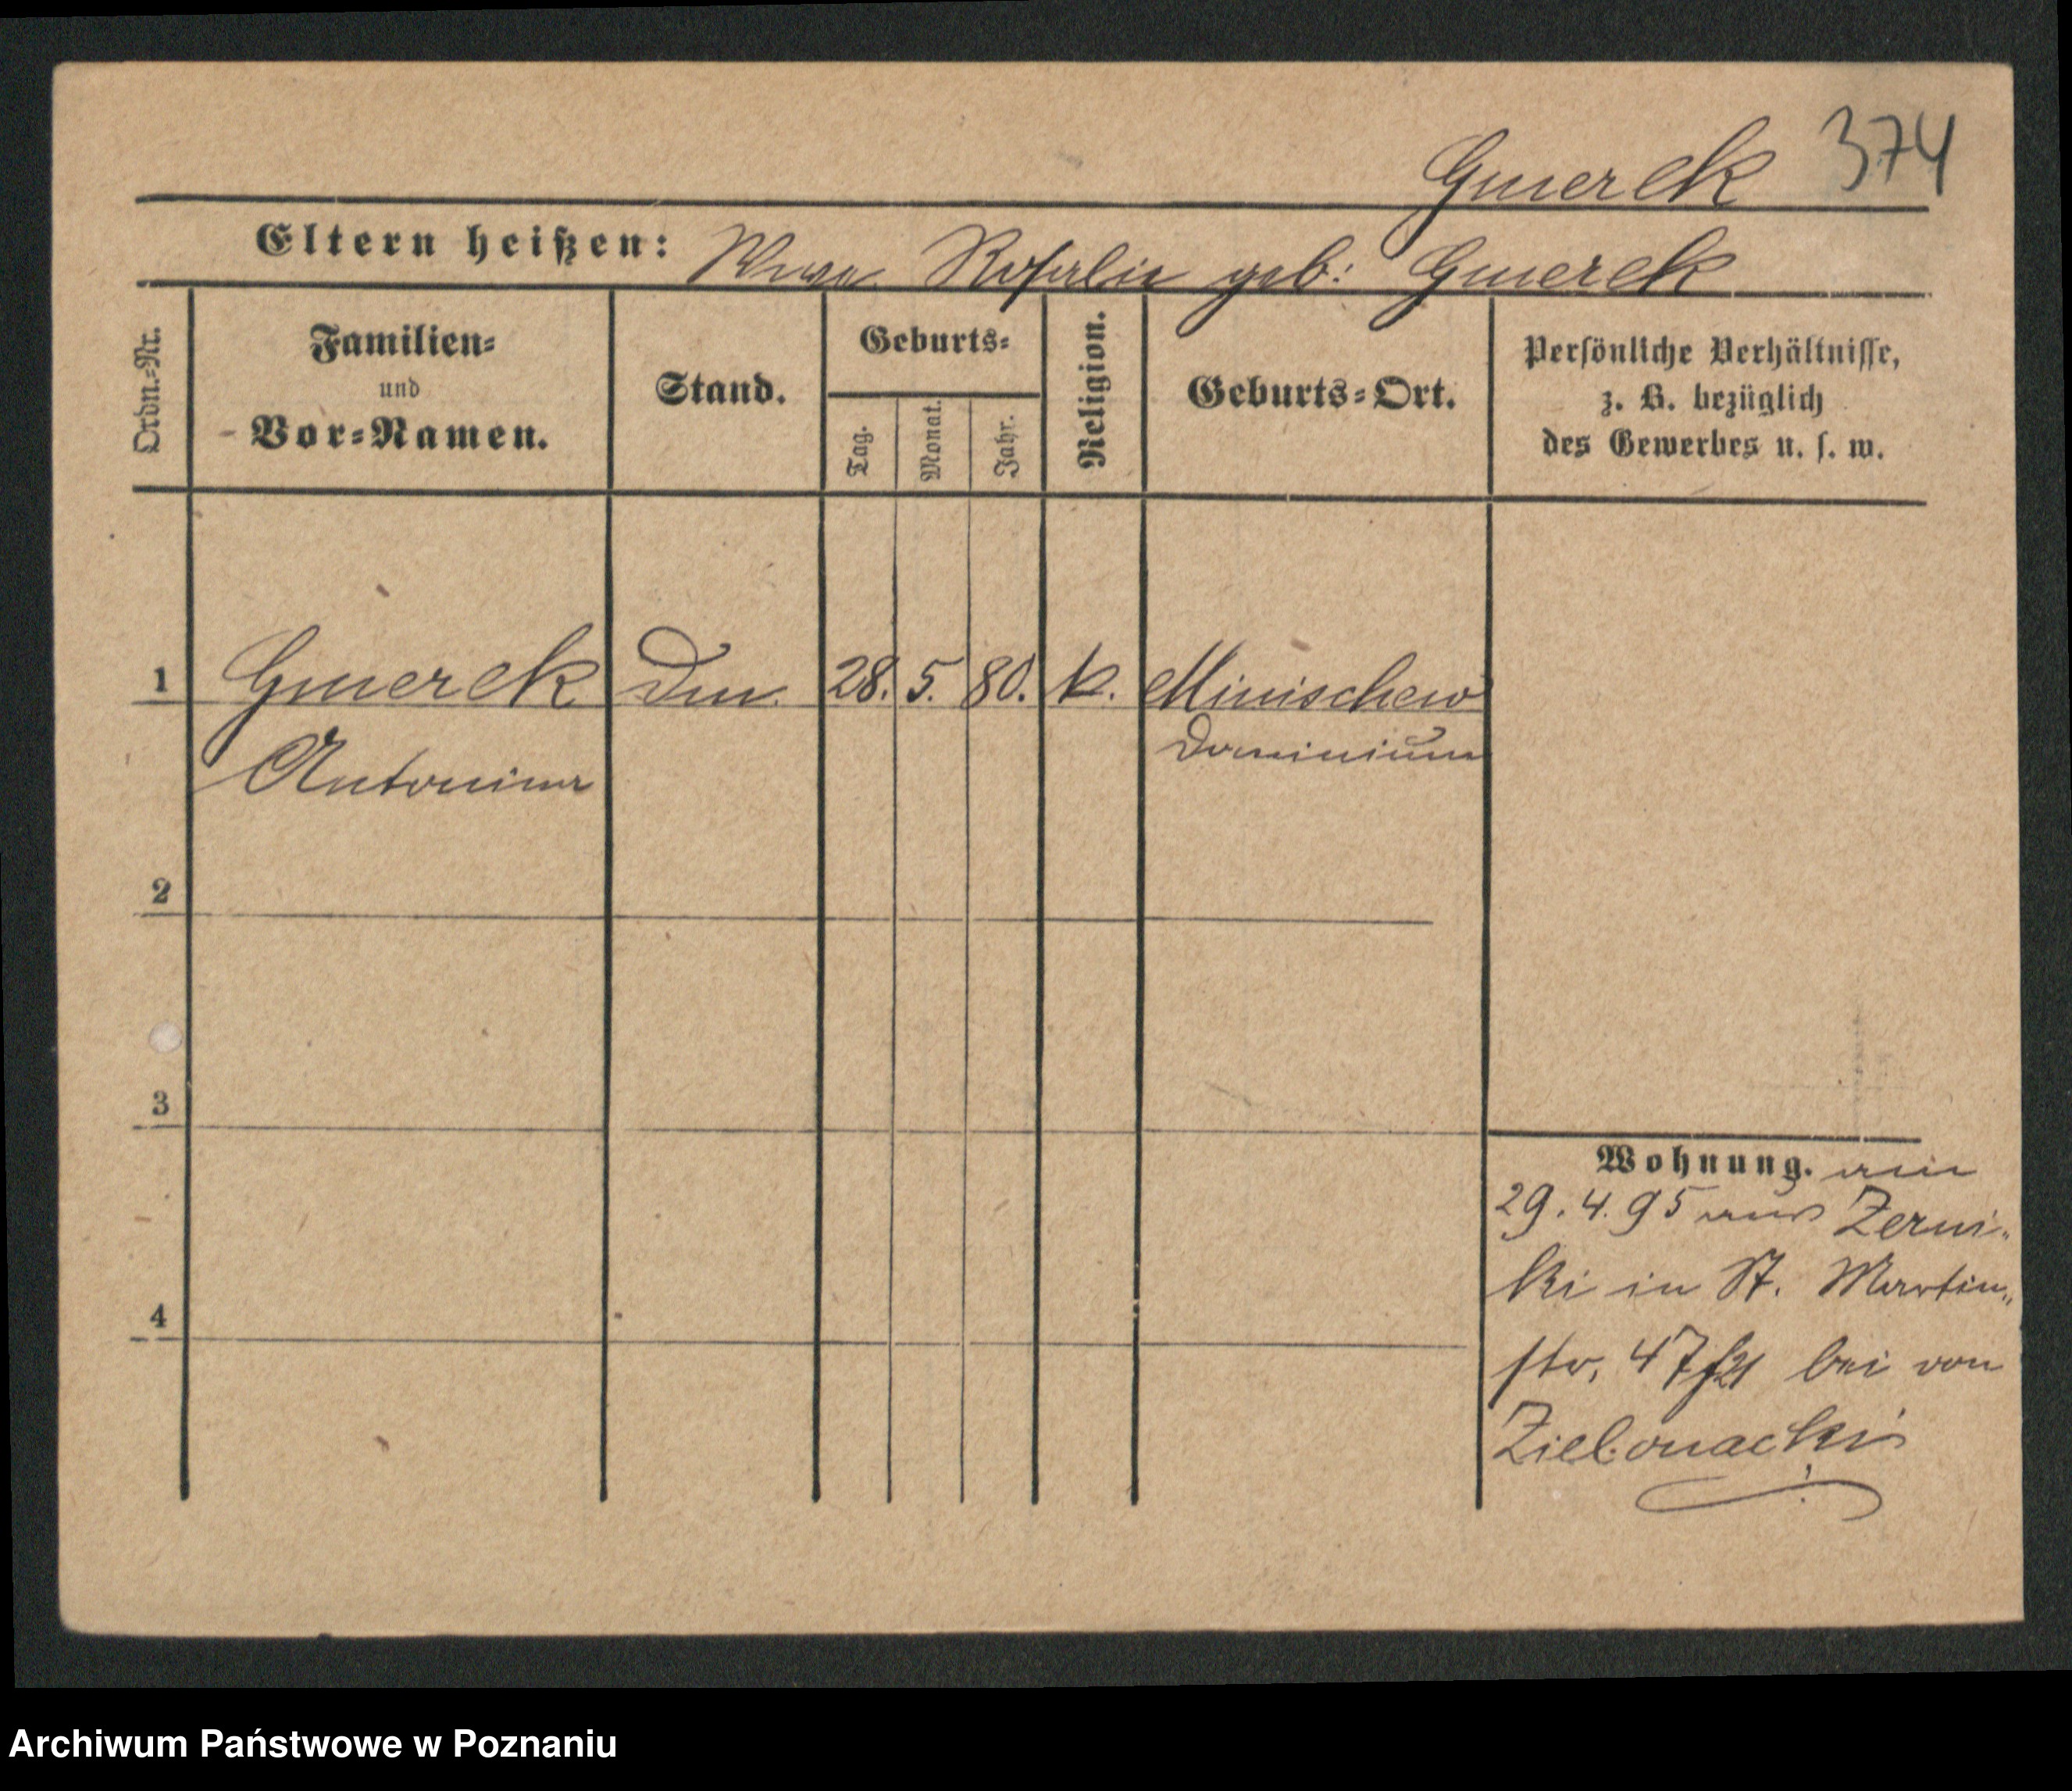 Gmerek 374
Eltern heißen: Wwe. Rosalie geb: Gmerek
Ordn.-Nr.
Familien-
und
Vor-Namen.
Stand.
Geburts-
Tag.
Monat.
Jahr.
Religion.
Geburts-Ort.
Persönliche Verhältnisse,
z. B. bezüglich
des Gewerbes u. s. w.
1 Gmerek 28. 5. 80. k. Minischew
Antonina Dominium
2
3
4
Wohnung. am
29. 4. 95 aus Zerni-
ki in St. Martin-
str. 47 bei von
Zielonacki
Archiwum Państwowe w Poznaniu